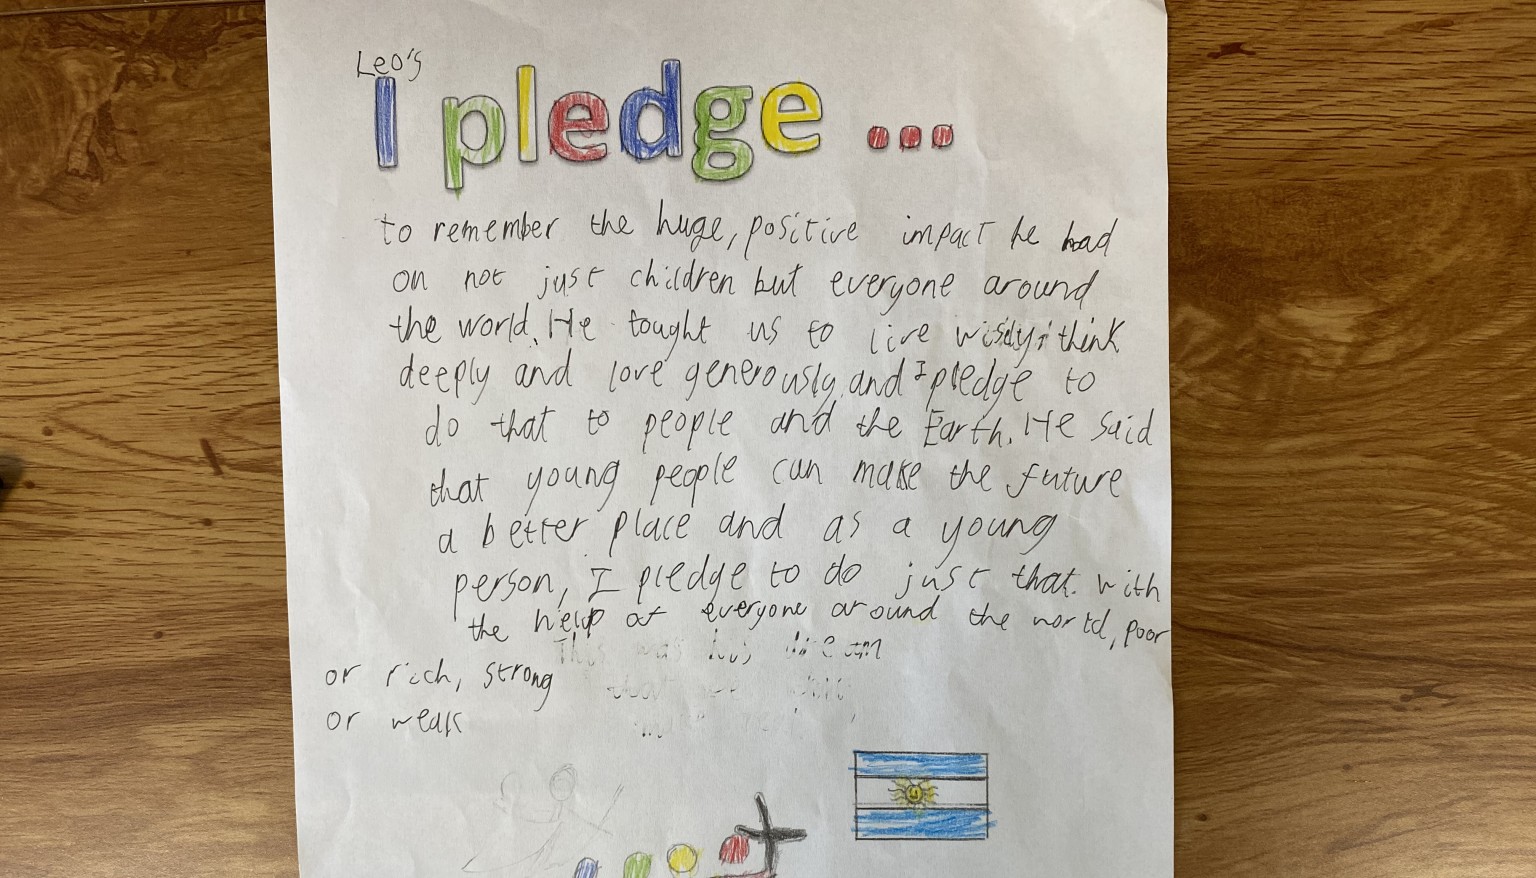 Leo's
I pledge ...
to remember the huge, positive impact he had
on not just children but everyone around
the world. He tought us to live wisely, think
deeply and love generously, and I pledge to
do that to people and the Earth. He said
that young people can make the future
a better place and as a young
person, I pledge to do just that. with
the help of everyone around the world, poor
This was his dream
or rich, strong
or weak